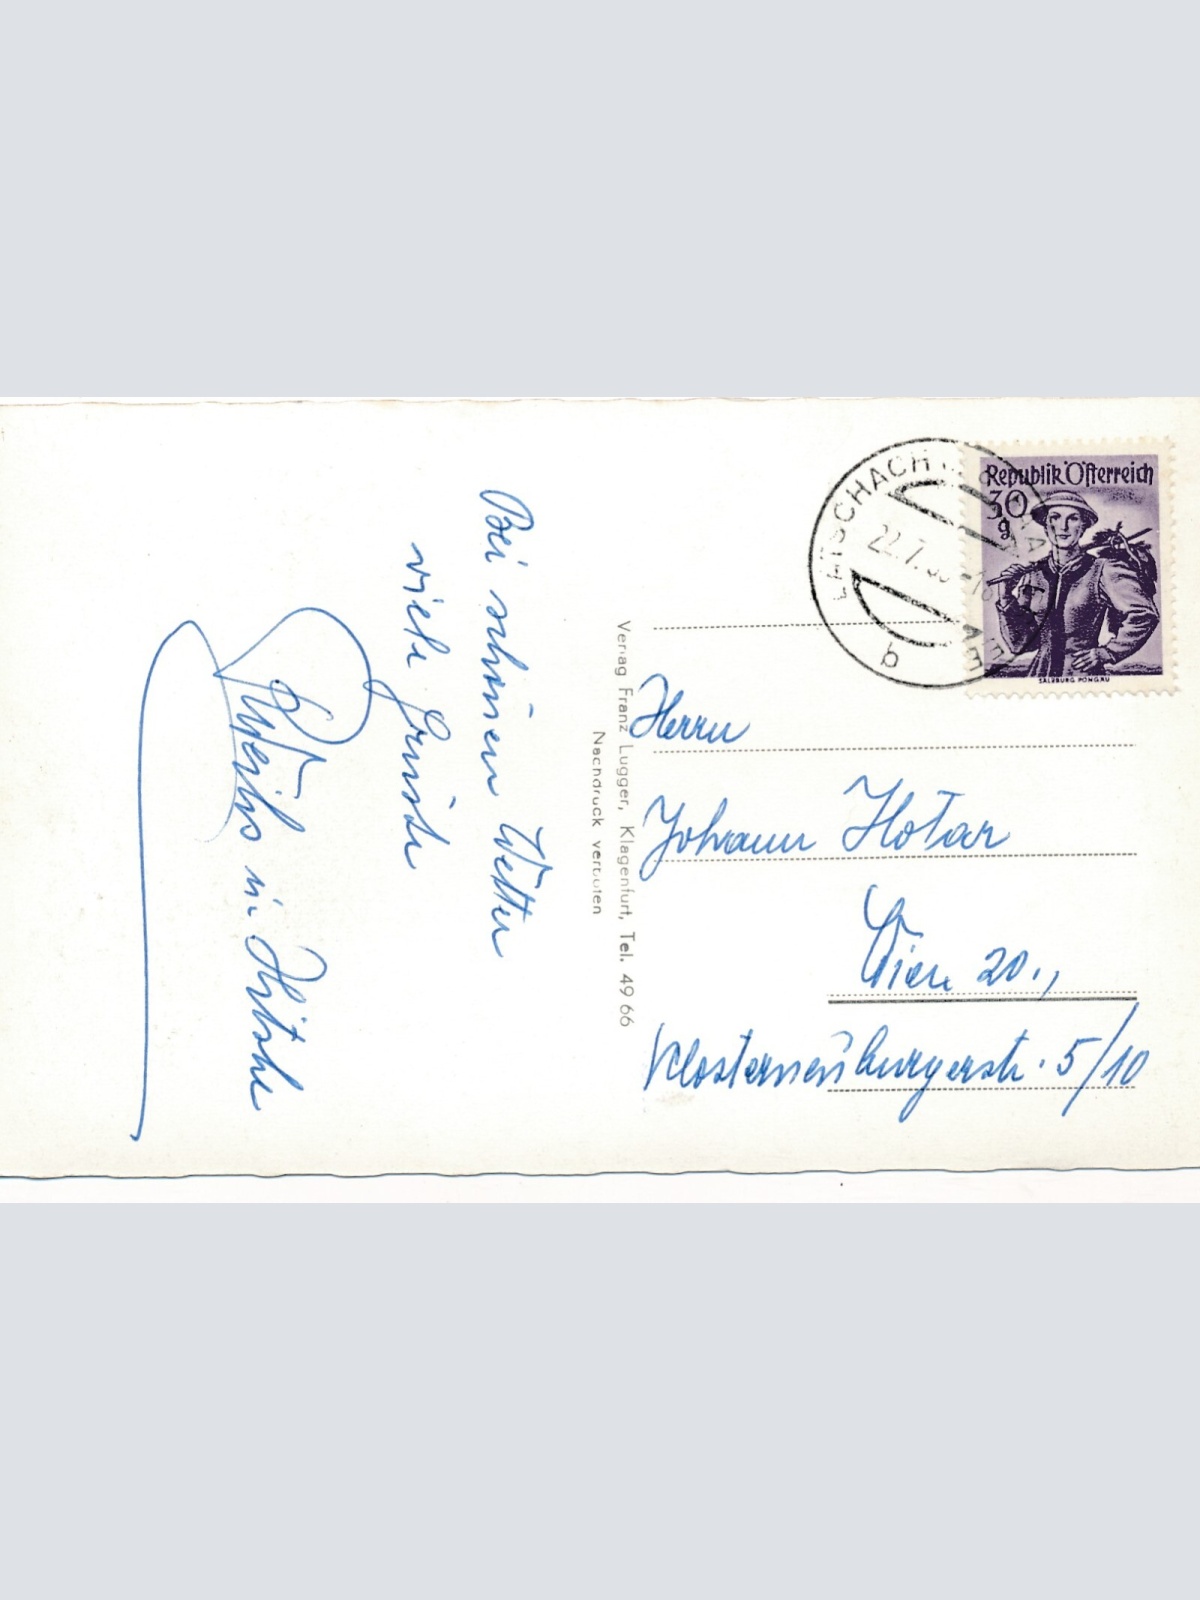 Bei schönen Wetter
viele Grüsse
Verlag Franz Lugger, Klagenfurt, Tel. 49 66
Nachdruck verboten
LATSCHACH
22.7.
b
Republik Österreich
30
g
SALZBURG PONGAU
Herrn
Johann Hotar
Wien 20.,
Klosterneuburgerstr. 5/10